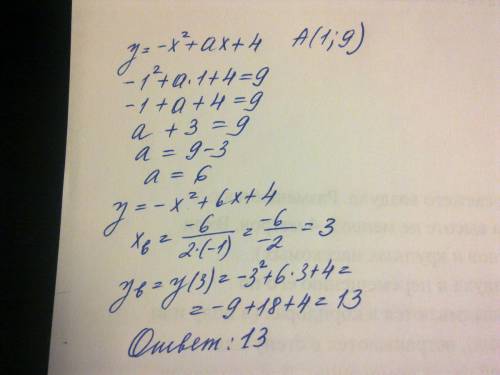 y = -x² + ax + 4 A(1; 9)
-1² + a·1 + 4 = 9
-1 + a + 4 = 9
a + 3 = 9
a = 9 - 3
a = 6
y = -x² + 6x + 4
x_в = -6/2·(-1) = -6/-2 = 3
y_в = y(3) = -3² + 6·3 + 4 =
= -9 + 18 + 4 = 13
Ответ: 13